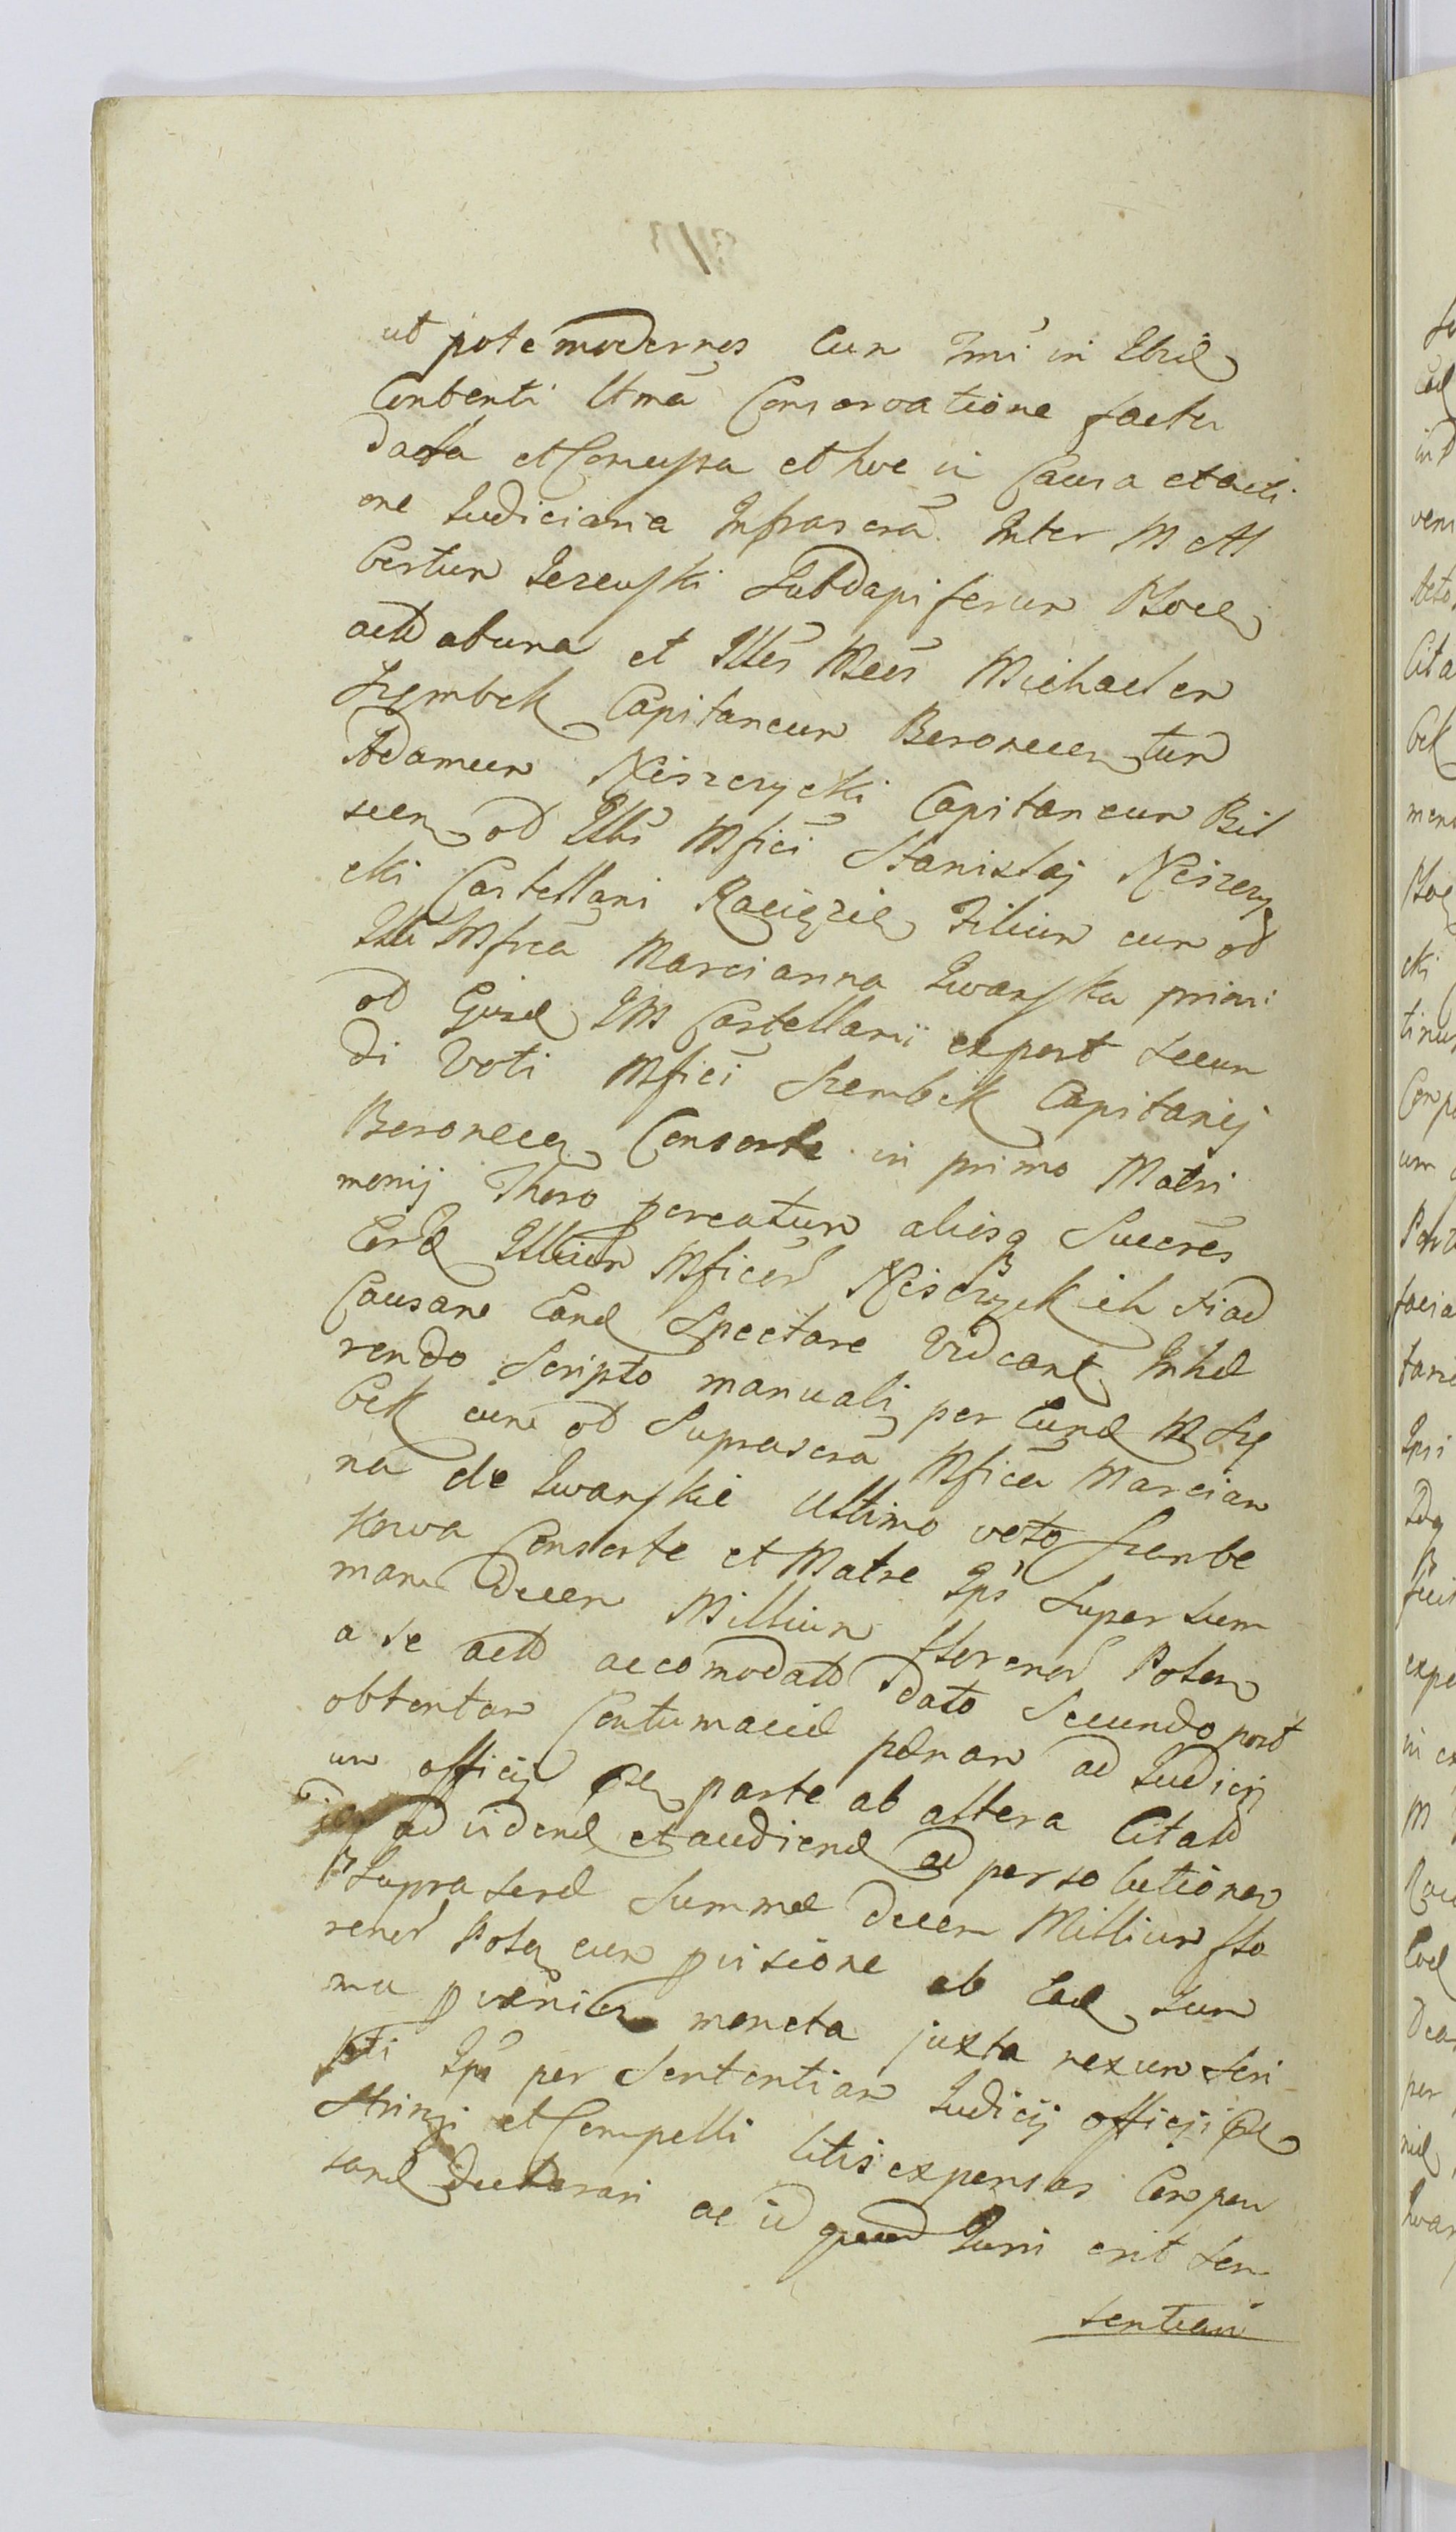 ut pote modernos Cum Imi in Ebild
Contenti Ltma Conservatione facta
data et Concussa et hoc in Causa et acti
one Judiciaria Infrascra Inter M Al
bertum Jezewski Subdapiferum Ploce
actd ab una et Illes Mees Michaelem
Szembek Capitaneum Beronecen tum
Adamum Niszczycki Capitaneum Bil
scen od Illis Mfici Stanislaj Niszczy
cki Castellani Raciązie Filium cum od
Illi Mfica Marcianna Iwanska primi
od Ejusd IM Castellanii expost secun
di Voti Mfici Szembek Capitanij
Beronecen Consorte in primo Matri
monij Thoro pcreatum aliosq Succres
Eord Illium Mficor Niszczyckich si ad
Causam Eand Spectare videant Inhæ
rendo Scripto manuali per Eund M Sze
bek cum od Suprascra Mfica Marcian
na de Iwanskie Ultimo voto Szembe
kowa Consorte et Matre Ipsi Super Sum
mam decem Millium florenor Polon
a se actd accomodatd dato Secundo post
obtentam Contumaciæ pænam ad Judicij
um officij parte ab altera Citatd
ad vidend et audiend ad persolutionem
Suprascrd Summæ decem Millium flo
renor Polon cum pvisione ab Ead Sum
ma pvenien moneta juxta nexum Scri
pti Ipsi per Sententiam Judicij officij
Stringi et Compelli litis expensas Compen
sand declarari ac id quod Juri erit Sen
sentiam